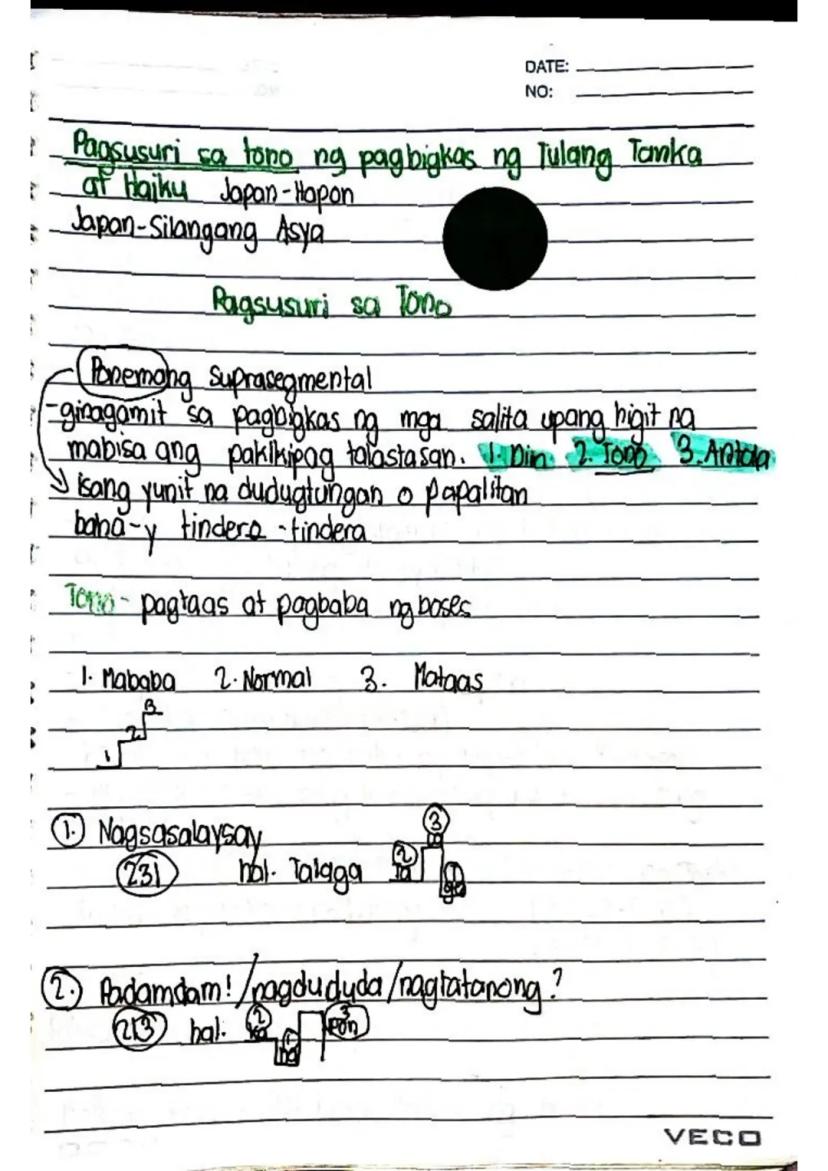 DATE:
NO:
Pagsusuri sa tono ng pagbigkas ng Tulang Tanka
at Haiku Japan-Hapon
Japan-Silangang Asya
Pagsusuri sa Tono
Ponemang suprasegmental
-ginagamit sa pagbigkas ng mga salita upang higit na
mabisa ang pakikipag talastasan. 1. Diin 2. Tono 3. Antala
isang yunit na dudugtungan o papalitan
baha-y tindero-tindera
Tono- pagtaas at pagbaba ng boses
1. Mababa 2. Normal 3. Mataas
3
2
1
1. Nagsasalaysay
3
la
231 hal. Talaga 2 1
ta ga
2. Padamdam! /nagdududa/nagtatanong?
213 hal. 2 1 3
ka ha pon
VECO